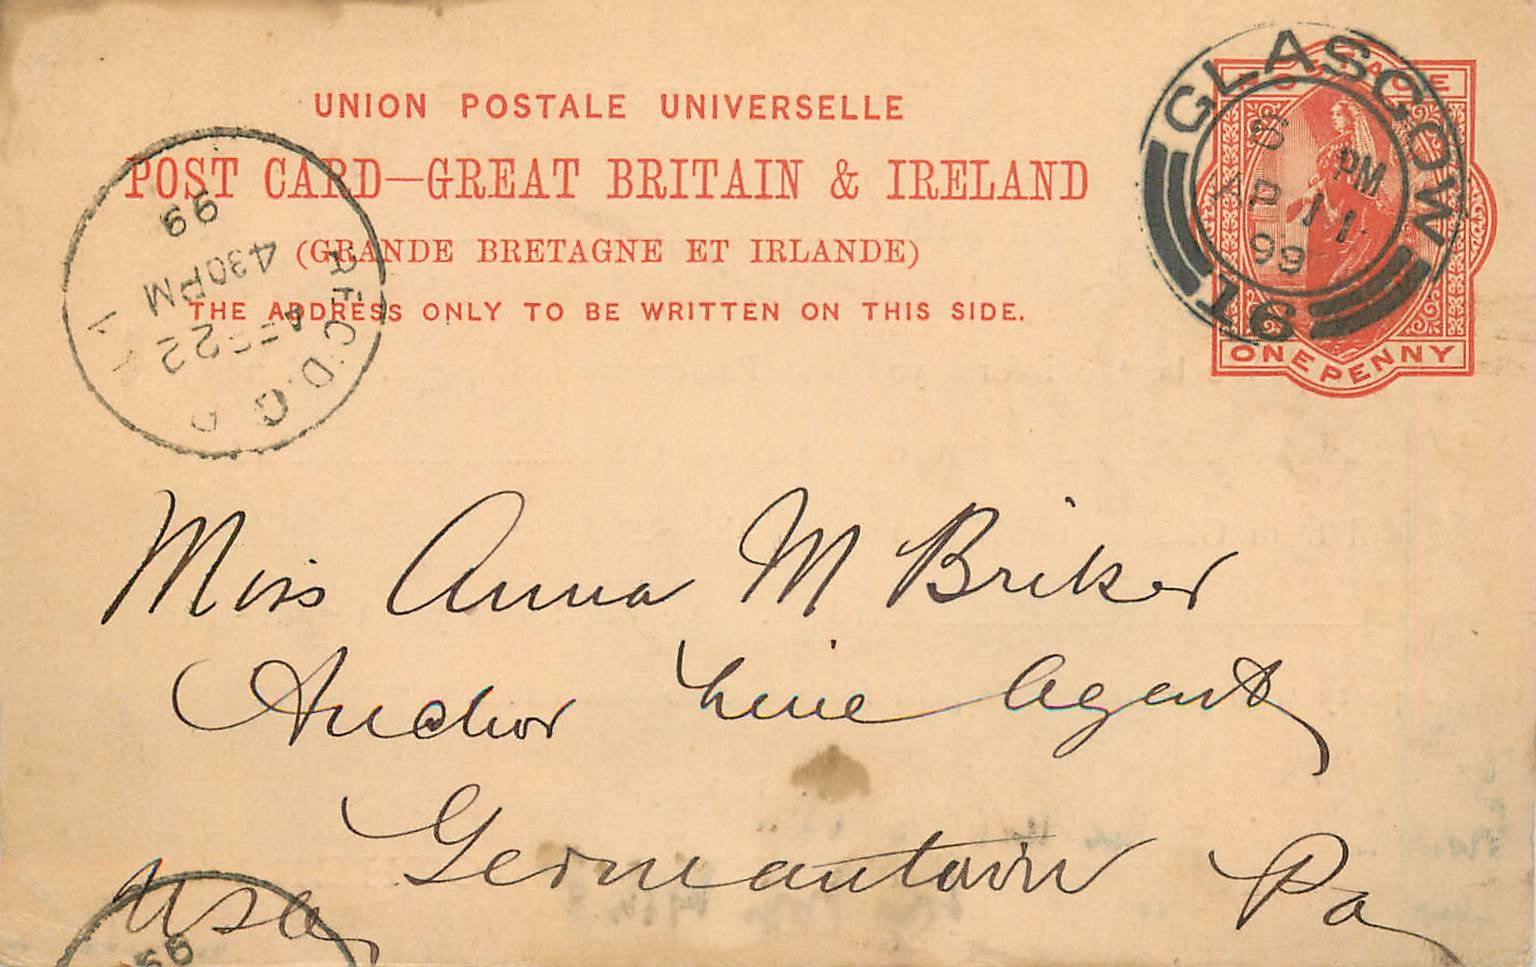 UNION POSTALE UNIVERSELLE
POST CARD—GREAT BRITAIN & IRELAND
(GRANDE BRETAGNE ET IRLANDE)
THE ADDRESS ONLY TO BE WRITTEN ON THIS SIDE.
GLASGOW
6 PM
AP 11
99
T6
POSTAGE
ONE PENNY
REC'D.
22
430PM
99
Miss Anna M Briker
Anchor Line Agent
Germantown Pa
USA
99